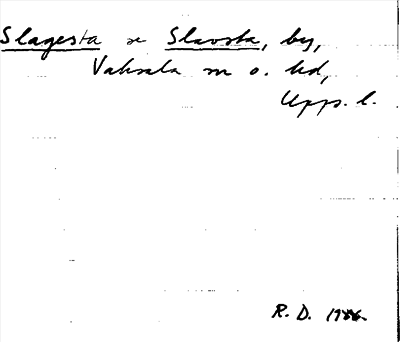 Slagesta se Slavsta, by,
Vaksala sn o. hd,
Upps. l.
R. D. 1986.